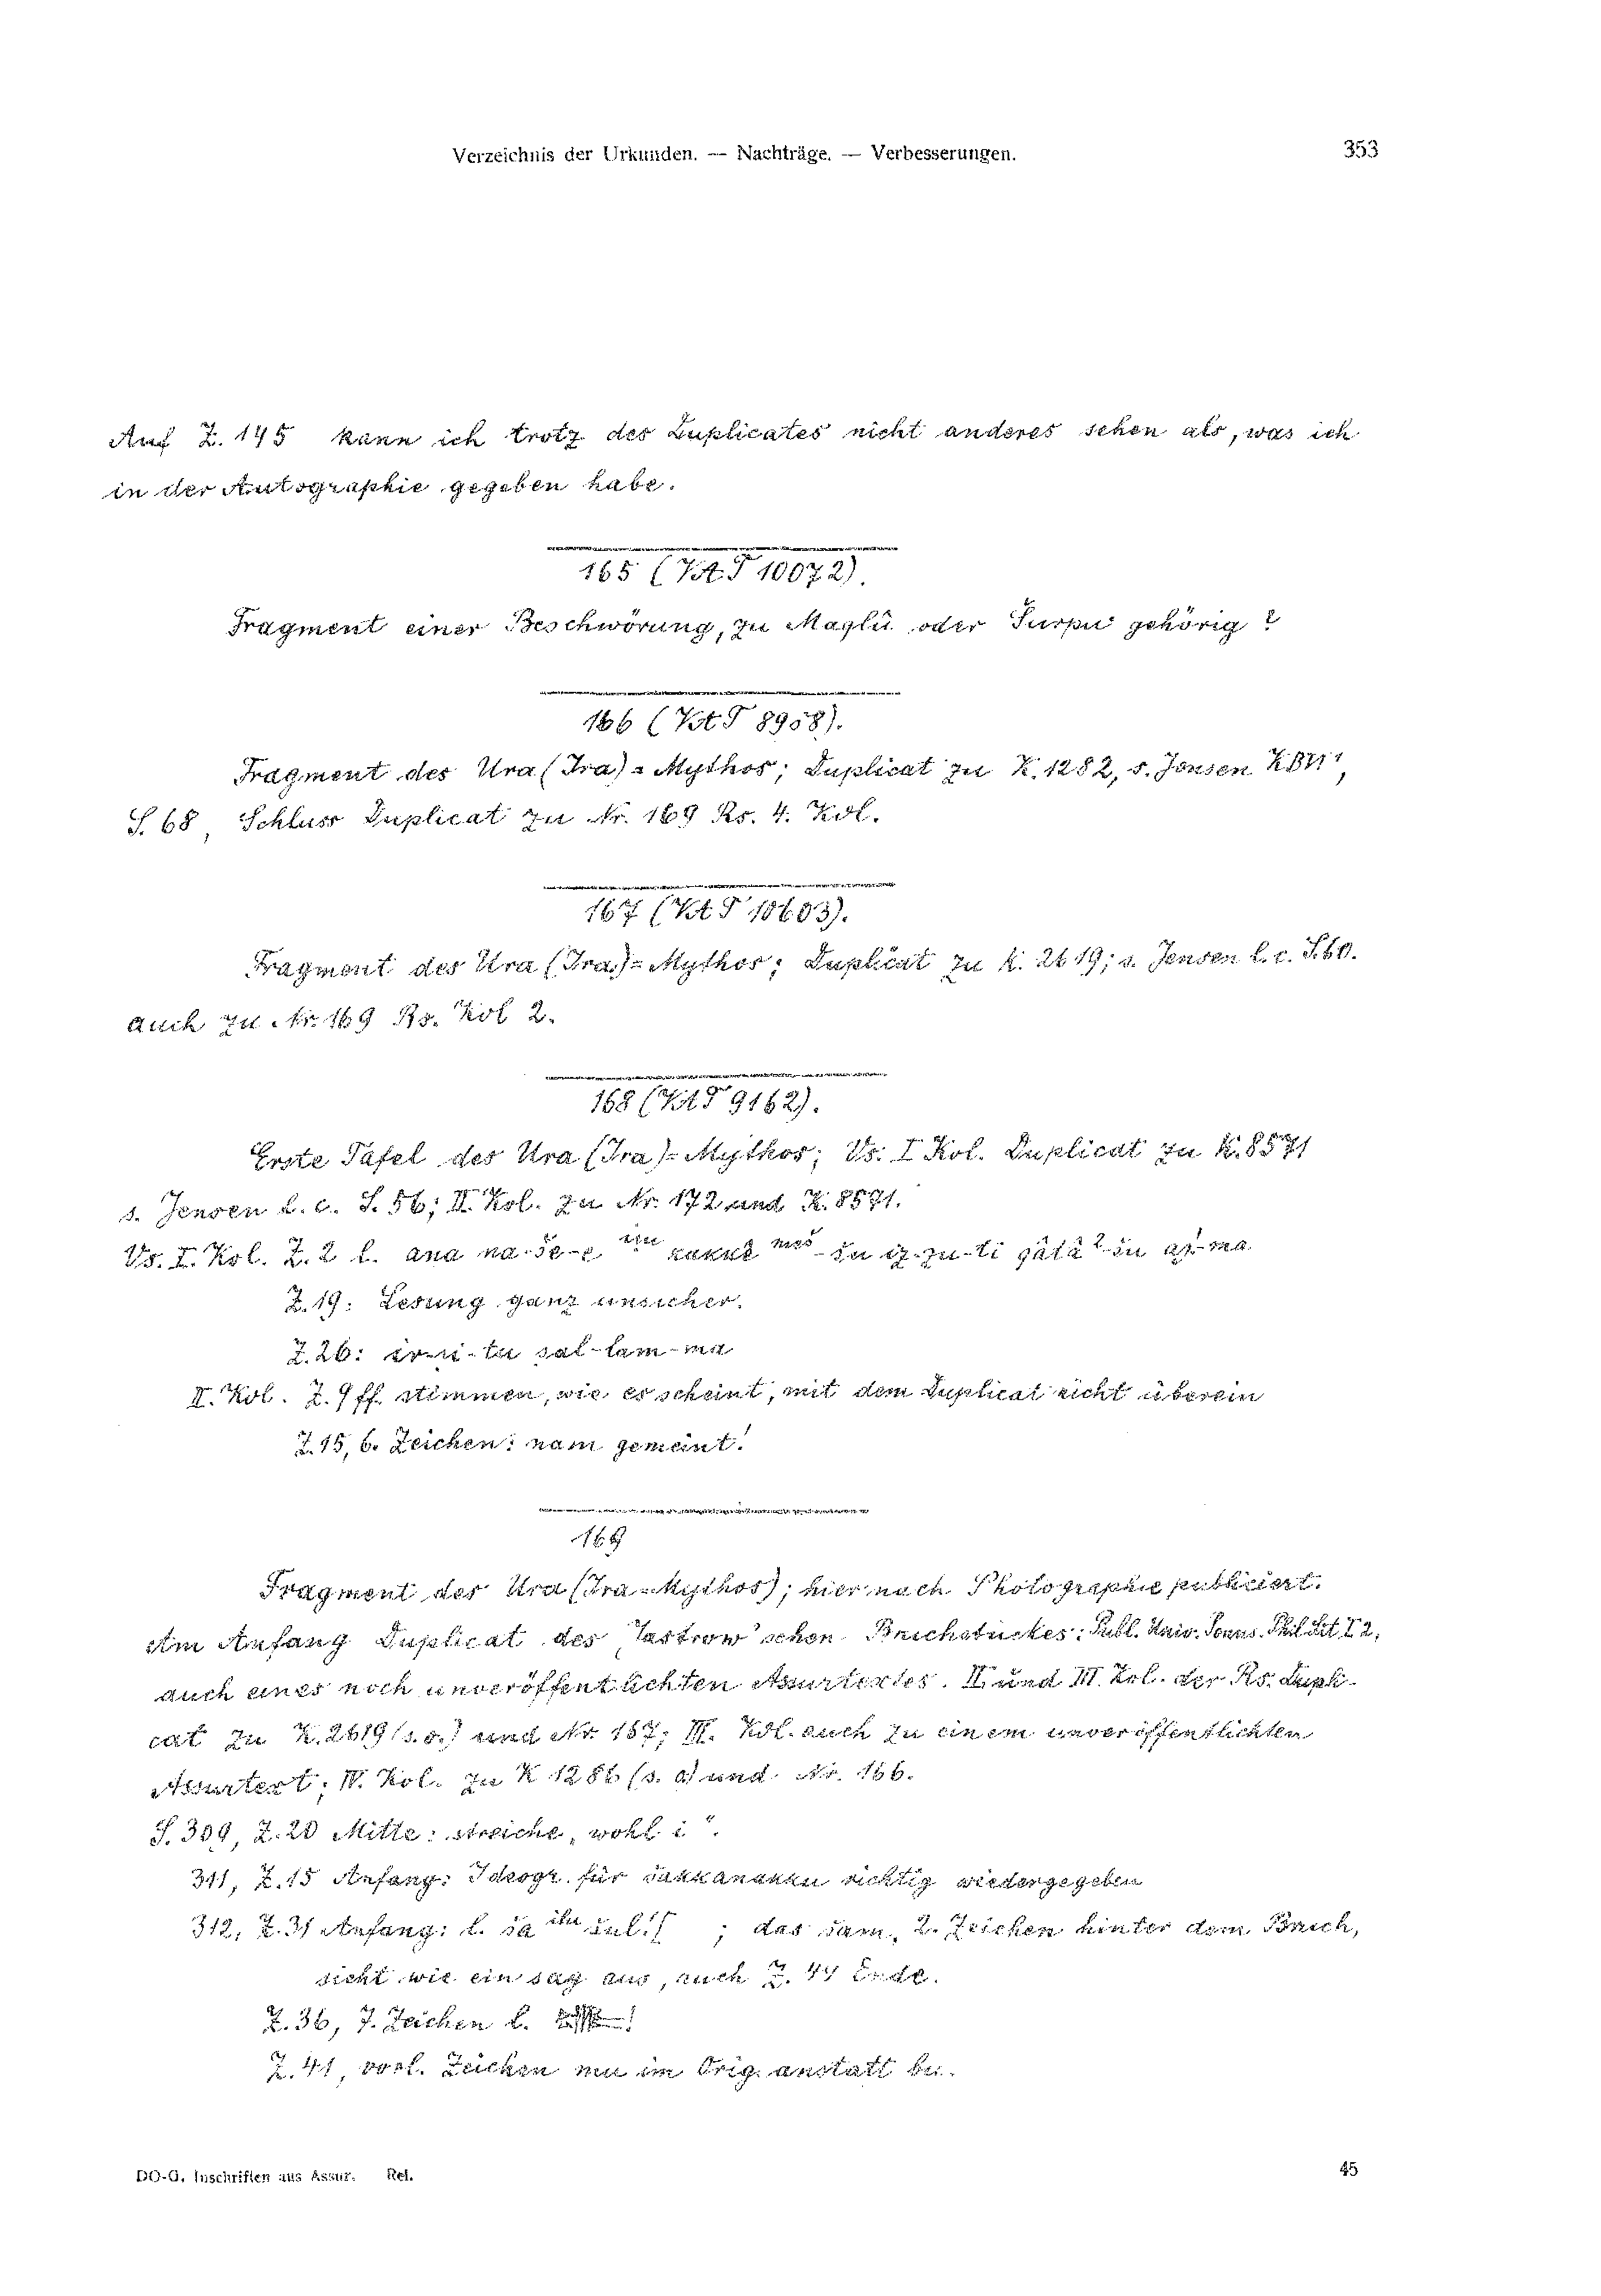 Verzeichnis der Urkunden. — Nachträge. — Verbesserungen. 353
Auf Z. 145 kann ich trotz des Duplicates nicht anderes sehen als, was ich
in der Autographie gegeben habe.
165 (VAT 10072).
Fragment einer Beschwörung, zu Maqlû oder Šurpu gehörig?
166 (VAT 8958).
Fragment des Ura (Ira)=Mythos; Duplicat zu K. 1282, s. Jensen KB VI¹,
S. 68, Schluss Duplicat zu Nr. 169 Rs. 4. Kol.
167 (VAT 10603).
Fragment des Ura (Ira)=Mythos; Duplicat zu K. 2619; s. Jensen l. c. S. 60.
auch zu Nr. 169 Rs. Kol 2.
168 (VAT 9162).
Erste Tafel des Ura (Ira)=Mythos; Vs. I Kol. Duplicat zu K. 8571
s. Jensen l. c. S. 56; II. Kol. zu Nr. 172 und K. 8571.
Vs. I. Kol. Z. 2 l. ana na-še-e kakkē meš-šu iz-zu-ti qâtâ²-šu
Z. 19: Lesung ganz unsicher.
Z. 26: šal-lam-ma
II. Kol. Z. 9 ff. stimmen, wie es scheint, mit dem Duplicat nicht überein
Z. 15, 6. Zeichen: nam gemeint!
169
Fragment des Ura (Ira=Mythos); hier nach Photographie publiciert.
Am Anfang Duplicat des Jastrow'schen Bruchstückes: Publ. Univ. Penns. Phil. Lit. I 2,
auch eines noch unveröffentlichten Assurtextes. II. und III. Kol. der Rs. Dupli-
cat zu K. 2619 (s. o.) und Nr. 167; III. Kol. auch zu einem unveröffentlichten
Assurtext; IV. Kol. zu K 1282 (s. o.) und Nr. 166.
S. 309, Z. 20 Mitte: streiche „wohl i".
311, Z. 15 Anfang: Ideogr. für šakkanakku richtig wiedergegeben
312, Z. 31 Anfang: l. ša ilu ; das 2. Zeichen hinter dem Bruch,
sieht wie ein sag aus, auch Z. 44 Ende.
Z. 36, 7. Zeichen l. !
Z. 41, vorl. Zeichen mu im Orig. anstatt bu.
DO-G. Inschriften aus Assur. Rel. 45